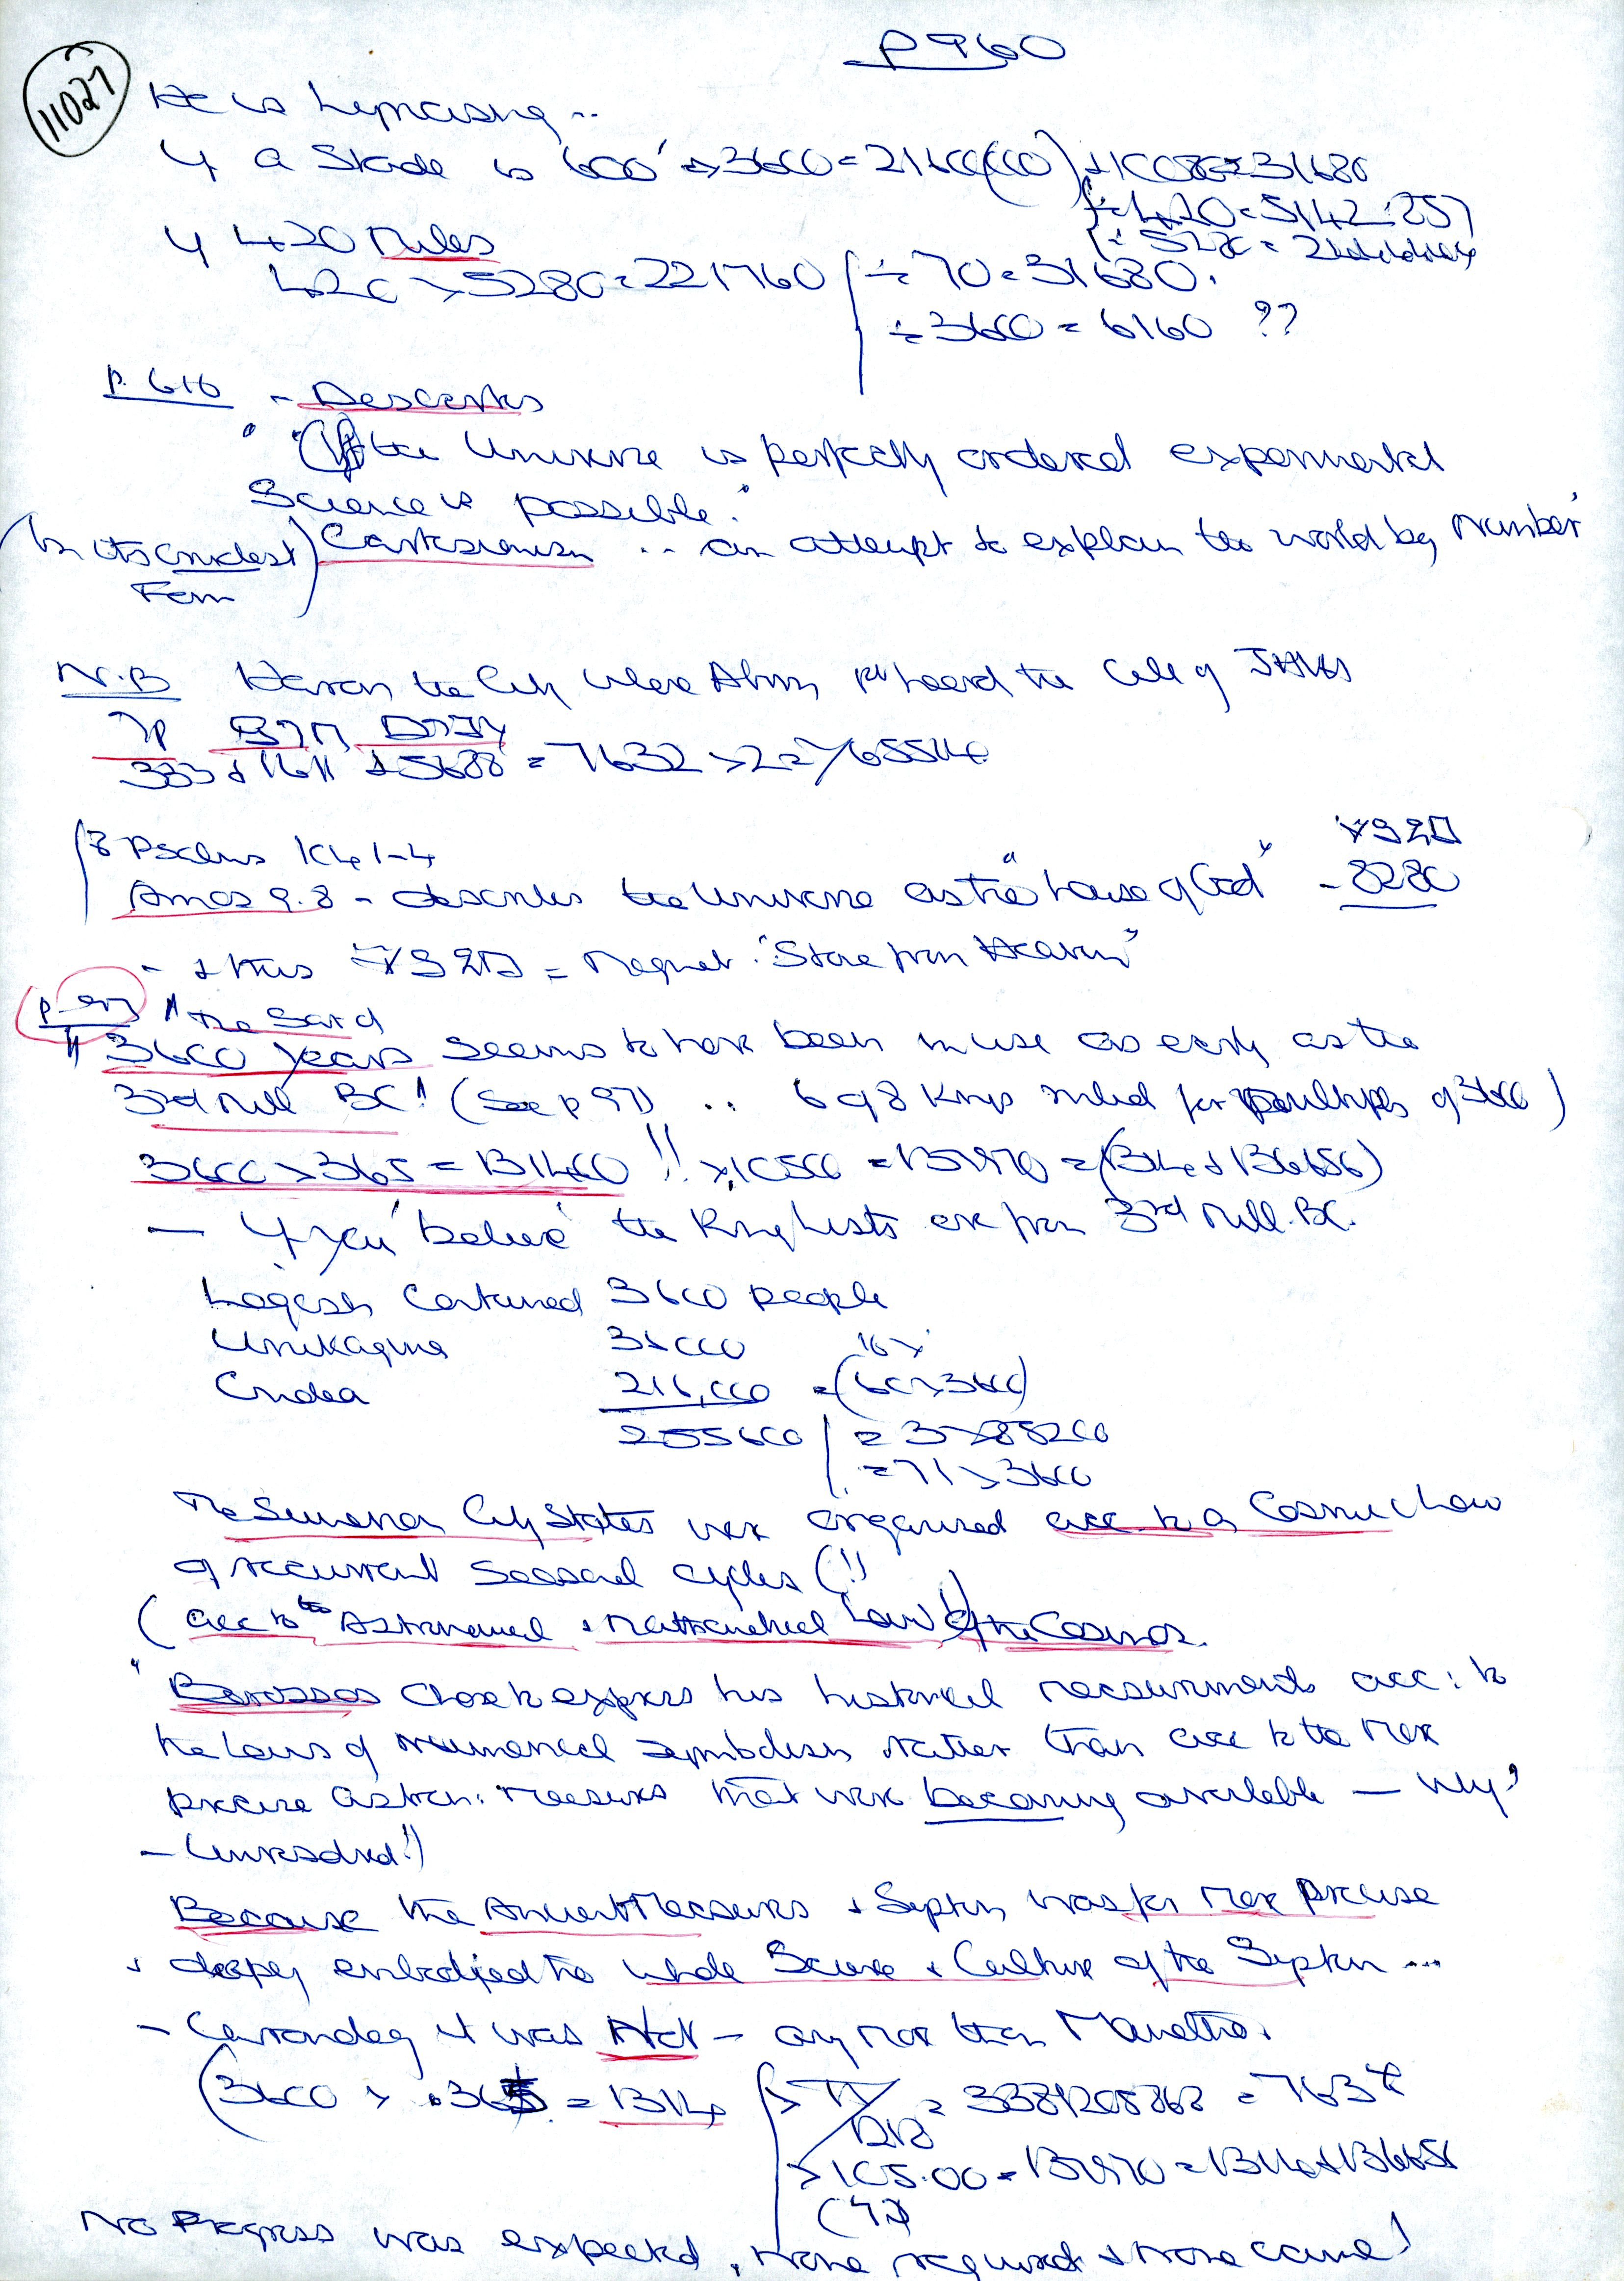 P 960
11027
He is hypnotising ..
4 a Stade is 600' × 3600 = 2160(000) + 10080 = 31680
÷ 420 = 5142.857
4 420 miles
÷ 5280 =
420 × 5280 = 221760 ÷ 70 = 31680.
÷ 3600 = 6160 ??
p. 616 - Descartes
"(If) the Universe is perfectly ordered experimental
Science is possible."
(In its crudest Form) Cartesianism .. an attempt to explain the world by 'Number'
N.B Harran the City where Abram 1st heard the Call of
333 + 1611 + 5688 = 7632 × 2 = 
& Psalms 104 1-4
Amos 9.8 - describes the Universe as the "house of God" - 8280
- & thus = Magnet. "Stone from Heaven"
p 97 "the Sar of
3600 years seems to have been in use as early as the
3rd Mill BC! (See p 97) .. 6 of 8 Kings ruled for multiples of 3600)
3600 × 365 = 1314000 !! × 10500 = 137970 = (1314 + 136656)
- if you 'believe' the King Lists are from 3rd Mill. BC.
Lagash Contained 3600 people
Urukagina 36000 10 ×
Gudea 216,000 = (60 × 3600)
255600 = 3 × 85200
= 71 × 3600
The Sumerian City States were organised acc. to a Cosmic Law
of recurrent Seasonal cycles (!!)
(acc to the Astronomical & Mathematical Law of the Cosmos.
"Berossos chose to express his historical measurements acc: to
the Laws of numerical symbolism rather than acc to the more
precise astron: measures that were becoming available - Why?
- Unresolved!)
Because the Ancient Measures & System was far more precise
& deeply embodied the whole Science & Culture of the System ...
- Certainly it was Not - any more than Manetho.
(3600 × .365 = 1314
× 105.00 = 137970 = 1314 + 136656
No Progress was expected, none required & none came!